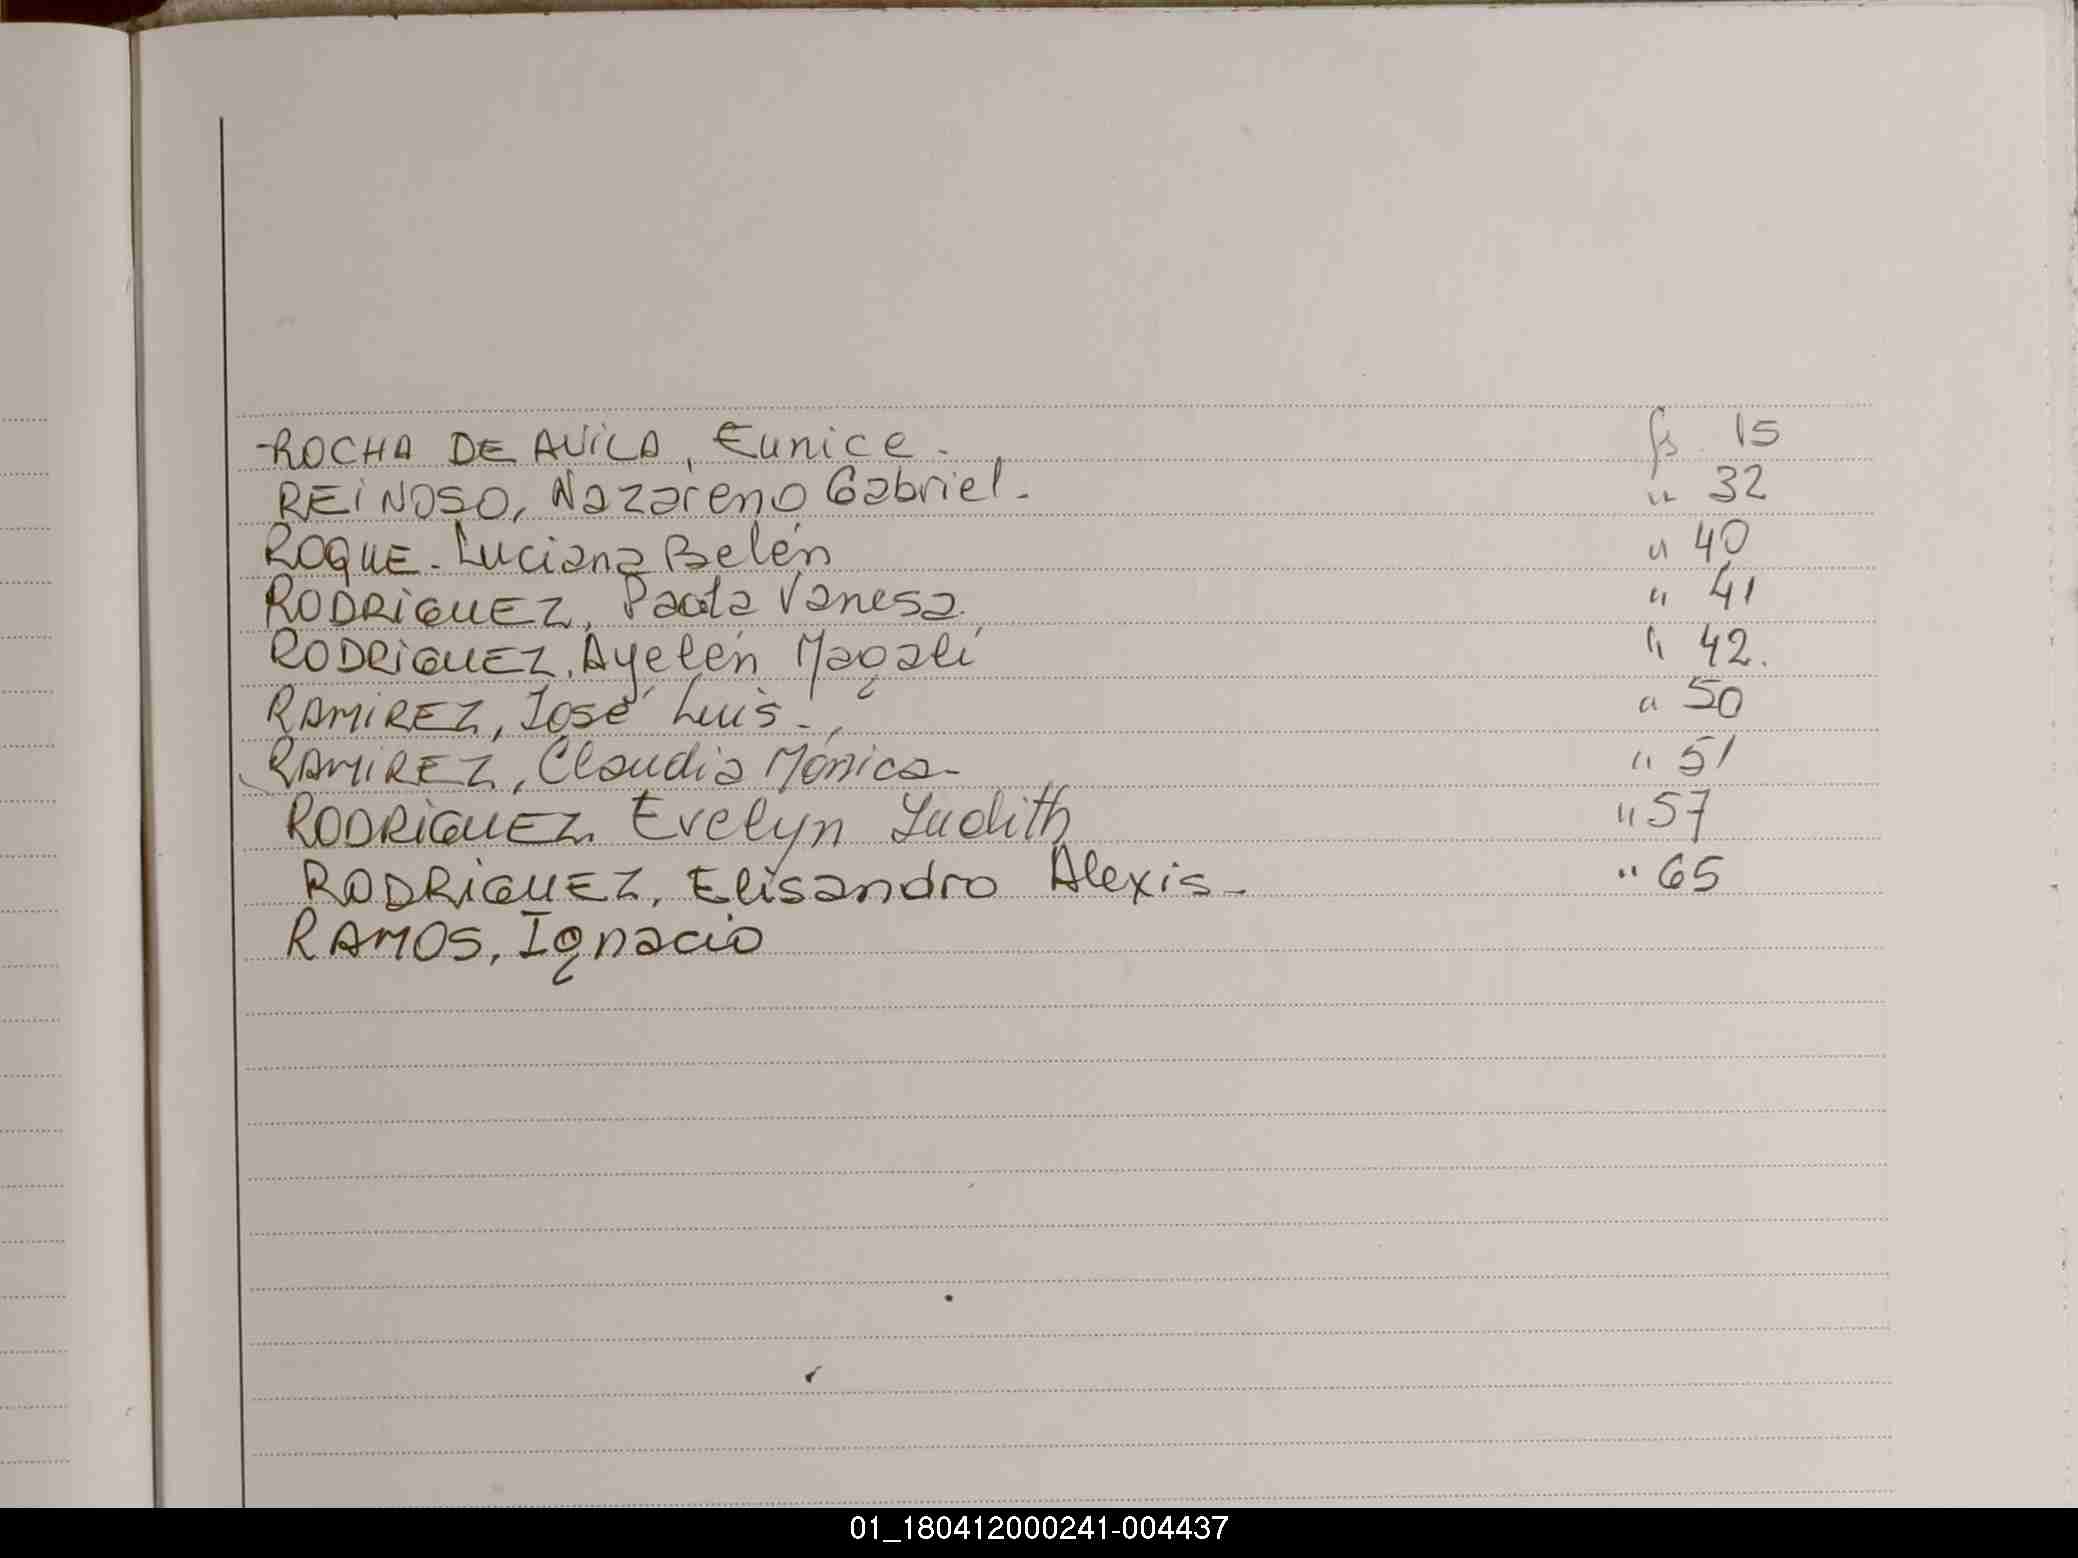 -ROCHA DE AVILA, Eunice. fs. 15
REINOSO, Nazareno Gabriel. " 32
ROQUE. Luciana Belén " 40
RODRIGUEZ, Paola Vanesa. " 41
RODRIGUEZ, Ayelén Magalí " 42.
RAMIREZ, José Luis. " 50
RAMIREZ, Claudia Mónica- " 51
RODRIGUEZ. Evelyn Judith " 57
RODRIGUEZ, Elisandro Alexis- " 65
RAMOS, Ignacio
01_180412000241-004437